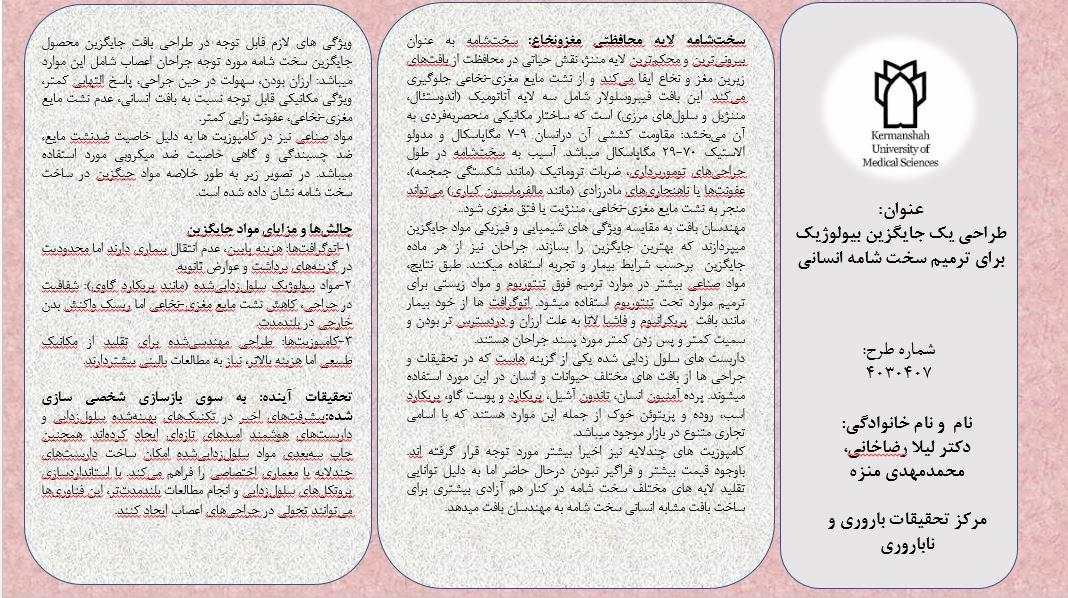 Kermanshah
University of
Medical Sciences
عنوان:
طراحی یک جایگزین بیولوژیک
برای ترمیم سخت شامه انسانی
شماره طرح:
۴۰۳۰۴۰۷
نام و نام خانوادگی:
دکتر لیلا رضاخانی،
محمدمهدی منزه
مرکز تحقیقات باروری و
ناباروری
سخت‌شامه لایه محافظتی مغزونخاع: سخت‌شامه به عنوان
بیرونی‌ترین و محکم‌ترین لایه مننژ، نقش حیاتی در محافظت از بافت‌های
زیرین مغز و نخاع ایفا می‌کند و از نشت مایع مغزی-نخاعی جلوگیری
می‌کند. این بافت فیبروسلولار شامل سه لایه آناتومیک (اندوستئال،
مننژیل و سلول‌های مرزی) است که ساختار مکانیکی منحصربه‌فردی به
آن می‌بخشد: مقاومت کششی آن درانسان ۹-۷ مگاپاسکال و مدولو
الاستیک ۷۰-۲۹ مگاپاسکال میباشد. آسیب به سخت‌شامه در طول
جراحی‌های توموربرداری، ضربات تروماتیک (مانند شکستگی جمجمه)،
عفونت‌ها یا ناهنجاری‌های مادرزادی (مانند مالفرماسیون کیاری) می‌تواند
منجر به نشت مایع مغزی-نخاعی، مننژیت یا فتق مغزی شود..
مهندسان بافت به مقایسه ویژگی های شیمیایی و فیزیکی مواد جایگزین
میپردازند که بهترین جایگزین را بسازند. جراحان نیز از هر ماده
جایگزین برحسب شرایط بیمار و تجربه استفاده میکنند. طبق نتایج،
مواد صناعی بیشتر در موارد ترمیم فوق تنتوریوم و مواد زیستی برای
ترمیم موارد تحت تنتوریوم استفاده میشود. اتوگرافت ها از خود بیمار
مانند بافت پریکرانیوم و فاشیا لاتا به علت ارزان و دردسترس تر بودن و
سمیت کمتر و پس زدن کمتر مورد پسند جراحان هستند.
داربست های سلول زدایی شده یکی از گزینه هاییت که در تحقیقات و
جراحی ها از بافت های مختلف حیوانات و انسان در این مورد استفاده
میشوند. پرده آمنیون انسان، تاندون آشیل، پریکارد و پوست گاو، پریکارد
اسب، روده و پریتوئن خوک از جمله این موارد هستند که با اسامی
تجاری متنوع در بازار موجود میباشد.
کامپوزیت های چندلایه نیز اخیرا بیشتر مورد توجه قرار گرفته اند.
باوجود قیمت بیشتر و فراگیر نبودن درحال حاضر اما به دلیل توانایی
تقلید لایه های مختلف سخت شامه در کنار هم آزادی بیشتری برای
ساخت بافت مشابه انسانی سخت شامه به مهندسان بافت میدهد.
ویژگی های لازم قابل توجه در طراحی بافت جایگزین محصول
جایگزین سخت شامه مورد توجه جراحان اعصاب شامل این موارد
میباشد: ارزان بودن، سهولت در حین جراحی، پاسخ التهابی کمتر،
ویژگی مکانیکی قابل توجه نسبت به بافت انسانی، عدم نشت مایع
مغزی-نخاعی، عفونت زایی کمتر.
مواد صناعی نیز در کامپوزیت ها به دلیل خاصیت ضدنشت مایع،
ضد چسبندگی و گاهی خاصیت ضد میکروبی مورد استفاده
میباشد. در تصویر زیر به طور خلاصه مواد جیگزین در ساخت
سخت شامه نشان داده شده است.
چالش‌ها و مزایای مواد جایگزین
۱-اتوگرافت‌ها: هزینه پایین، عدم انتقال بیماری دارند اما محدودیت
در گزینه‌های برداشت و عوارض ثانویه.
۲-مواد بیولوژیک سلول‌زدایی‌شده (مانند پریکارد گاوی): شفافیت
در جراحی، کاهش نشت مایع مغزی-نخاعی اما ریسک واکنش بدن
خارجی در بلندمدت.
۳-کامپوزیت‌ها: طراحی مهندسی‌شده برای تقلید از مکانیک
طبیعی اما هزینه بالاتر، نیاز به مطالعات بالینی بیشتردارند.
تحقیقات آینده: به سوی بازسازی شخصی سازی
شده:پیشرفت‌های اخیر در تکنیک‌های بهینه‌شده سلول‌زدایی و
داربست‌های هوشمند امیدهای تازه‌ای ایجاد کرده‌اند. همچنین
چاپ سه‌بعدی مواد سلول‌زدایی‌شده امکان ساخت داربست‌های
چندلایه با معماری اختصاصی را فراهم می‌کند. با استانداردسازی
پروتکل‌های سلول‌زدایی و انجام مطالعات بلندمدت‌تر، این فناوری‌ها
می‌توانند تحولی در جراحی‌های اعصاب ایجاد کنند.